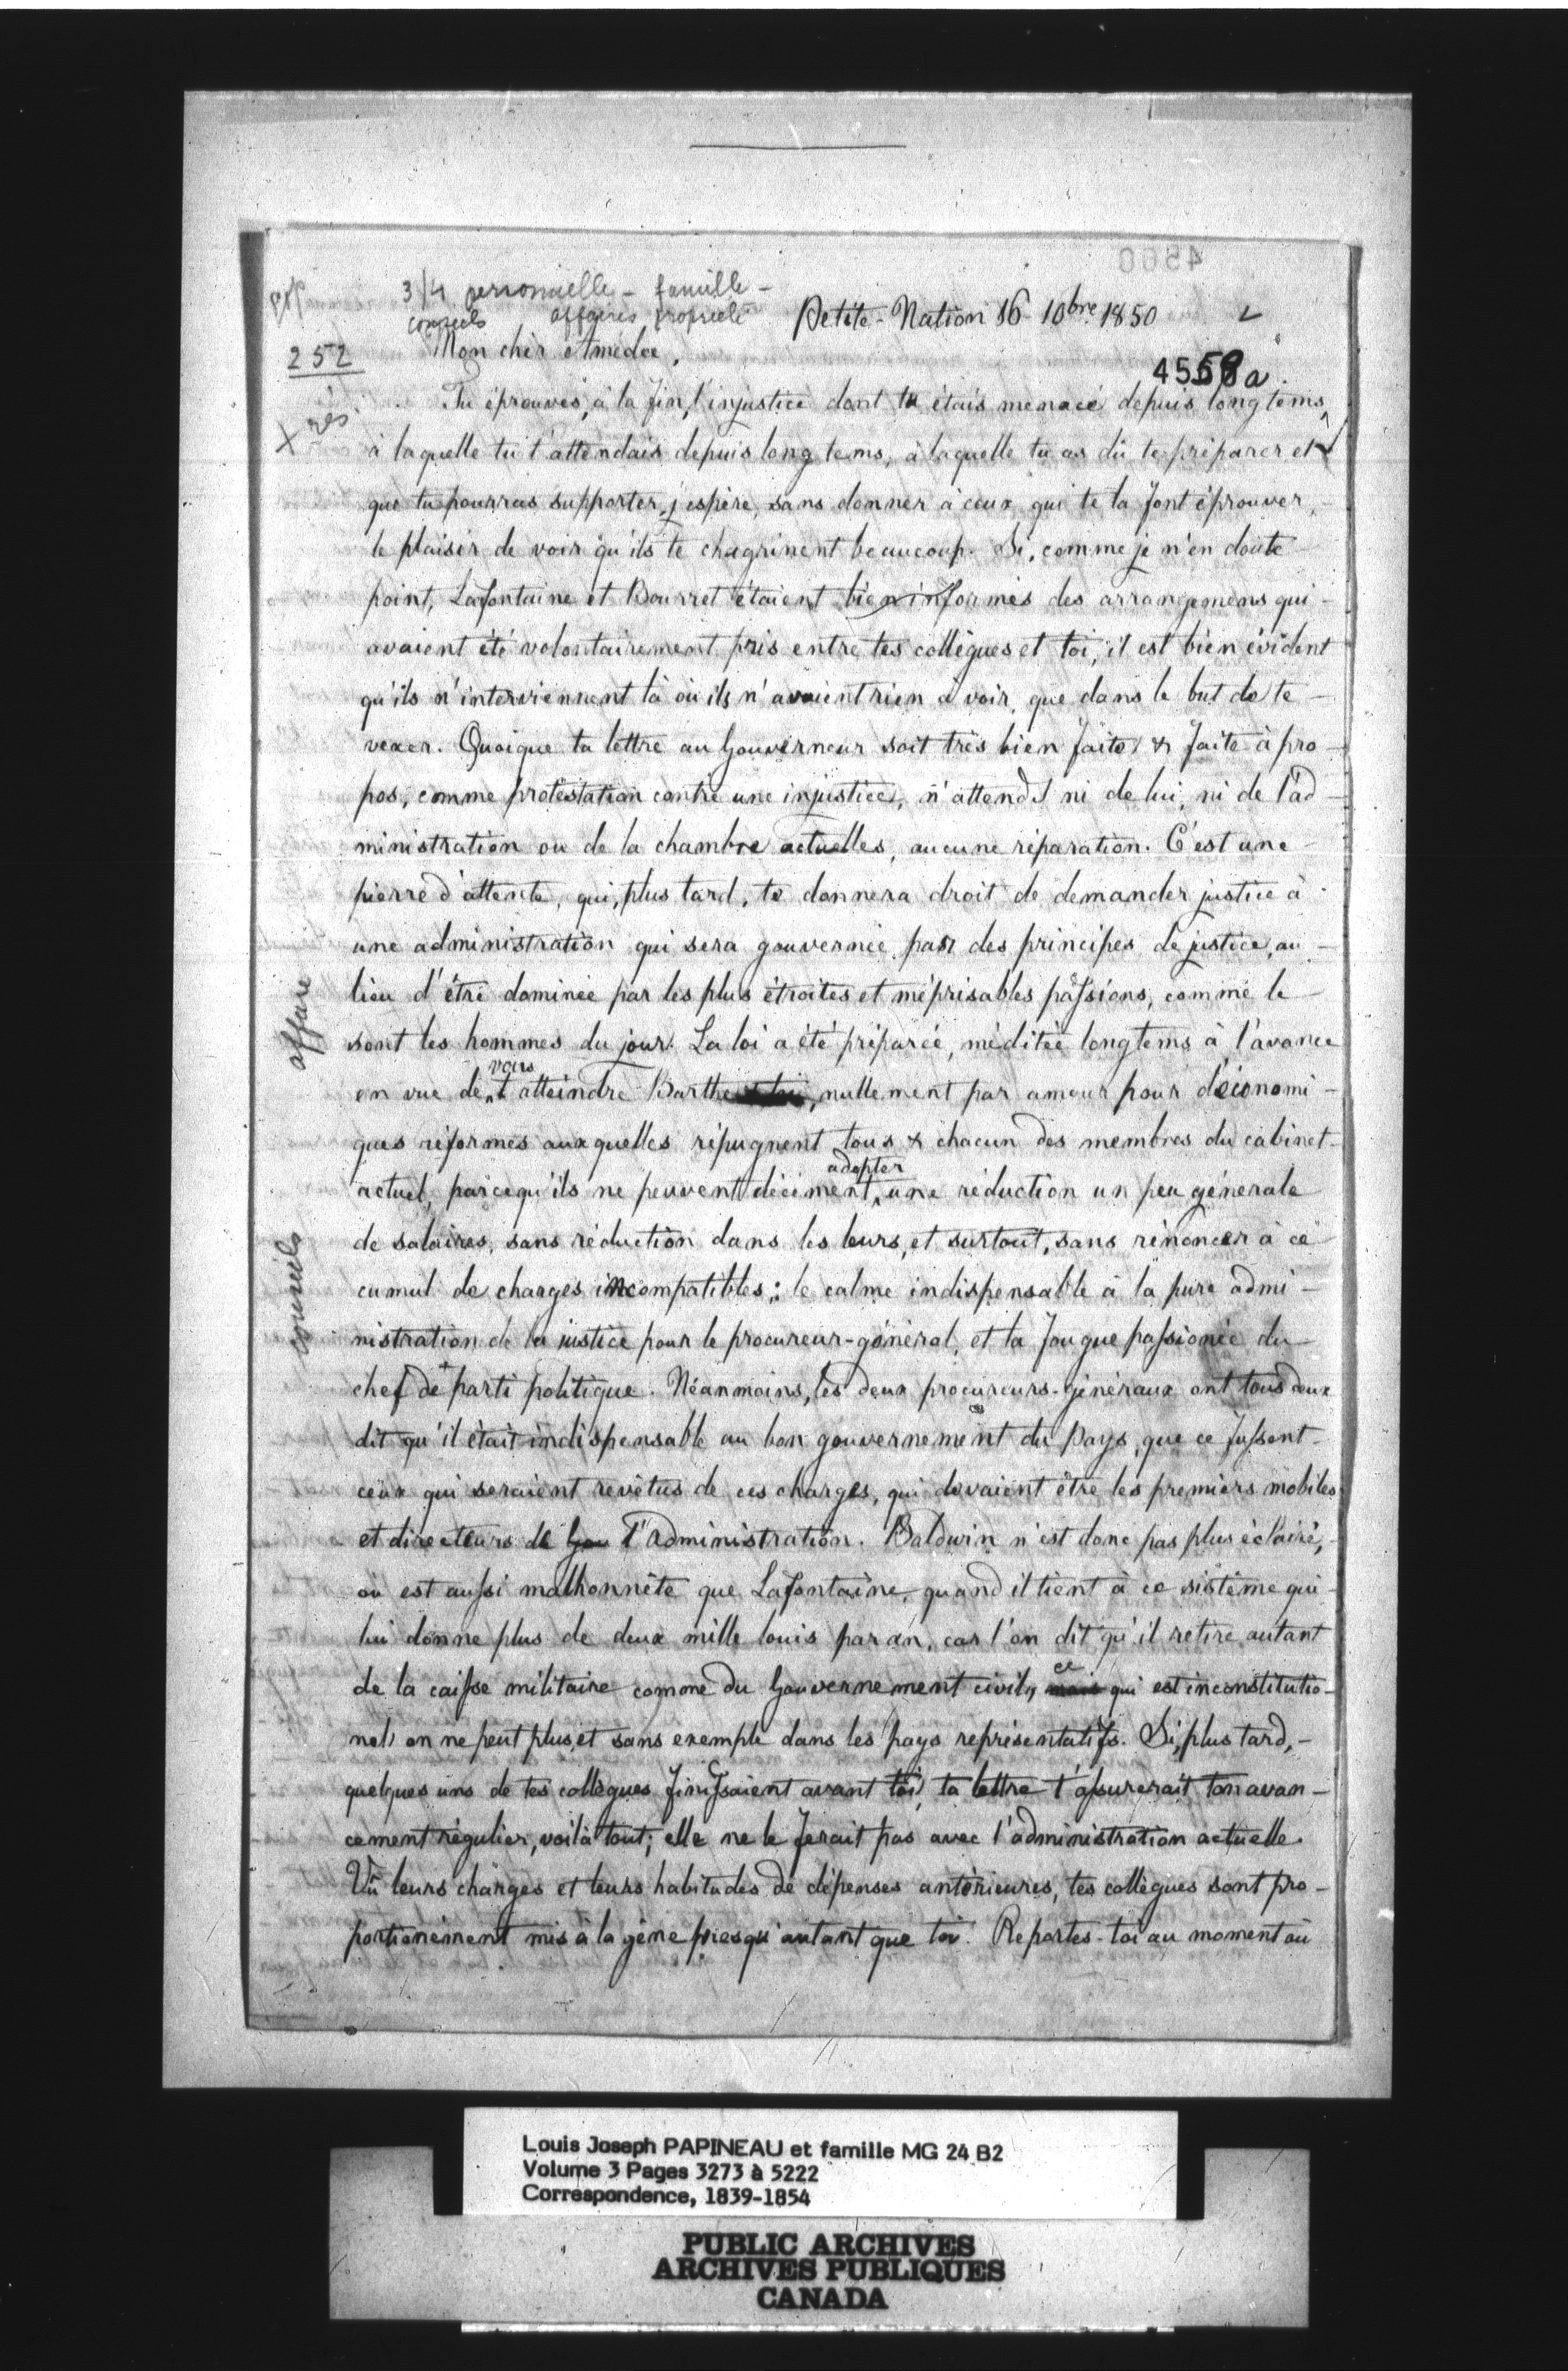 4560
3/4 personnelle - famille -
conseils affaires propriété
Petite-Nation 16 10bre 1850
252
Mon cher Amédée,
4558a
Tu éprouves, à la fin, l'injustice dont tu étais menacé depuis long tems,
à laquelle tu t'attendais depuis long tems, à laquelle tu as dû te préparer et
que tu pourras supporter, j'espère, sans donner à ceux qui te la font éprouver,
le plaisir de voir qu'ils te chagrinent beaucoup. Si, comme je n'en doute
point, Lafontaine et Bourret étaient bien informés des arrangemens qui
avaient été volontairement pris entre tes collègues et toi, il est bien évident
qu'ils n'interviennent là où ils n'avaient rien à voir, que dans le but de te
vexer. Quoique ta lettre au Gouverneur soit très bien faite & faite à pro-
pos, comme protestation contre une injustice, n'attends ni de lui, ni de l'ad-
ministration ou de la chambre actuelles, aucune réparation. C'est une
pierre d'attente, qui, plus tard, te donnera droit de demander justice à
une administration qui sera gouvernée par des principes de justice, au
lieu d'être dominée par les plus étroites et méprisables passions, comme le
sont les hommes du jour. La loi a été préparée, méditée longtems à l'avance
vous
en vue de t'atteindre Barthe, nullement par amour pour d'économi-
ques réformes auxquelles répugnent tous & chacun des membres du cabinet
adopter
actuel, parcequ'ils ne peuvent décement une réduction un peu générale
de salaires, sans réduction dans les leurs, et surtout, sans renoncer à ce
cumul de charges incompatibles: le calme indispensable à la pure admi-
nistration de la justice pour le procureur-général, et la fougue passionée du
chef de parti politique. Néanmoins, les deux procureurs-généraux ont tous deux
dit qu'il était indispensable au bon gouvernement du Pays, que ce fussent
ceux qui seraient revêtus de ces charges, qui devaient être les premiers mobiles
et directeurs de Gou l'administration. Baldwin n'est donc pas plus éclairé,
ou est aussi malhonnête que Lafontaine, quand il tient à ce sistême qui
lui donne plus de deux mille louis par an, car l'on dit qu'il retire autant
ce
de la caisse militaire comme du Gouvernement civil, mais qui est inconstitutio-
nel, on ne peut plus, et sans exemple dans les pays représentatifs. Si, plus tard,
quelques uns de tes collègues finissaient avant toi, ta lettre t'assurerait ton avan-
cement régulier, voilà tout; elle ne le ferait pas avec l'administration actuelle.
Vû leurs charges et leurs habitudes de dépenses antérieures, tes collègues sont pro-
portionément mis à la gêne presqu'autant que toi. Reportes-toi au moment où
affaire
conseils
Louis Joseph PAPINEAU et famille MG 24 B2
Volume 3 Pages 3273 à 5222
Correspondence, 1839-1854
PUBLIC ARCHIVES
ARCHIVES PUBLIQUES
CANADA